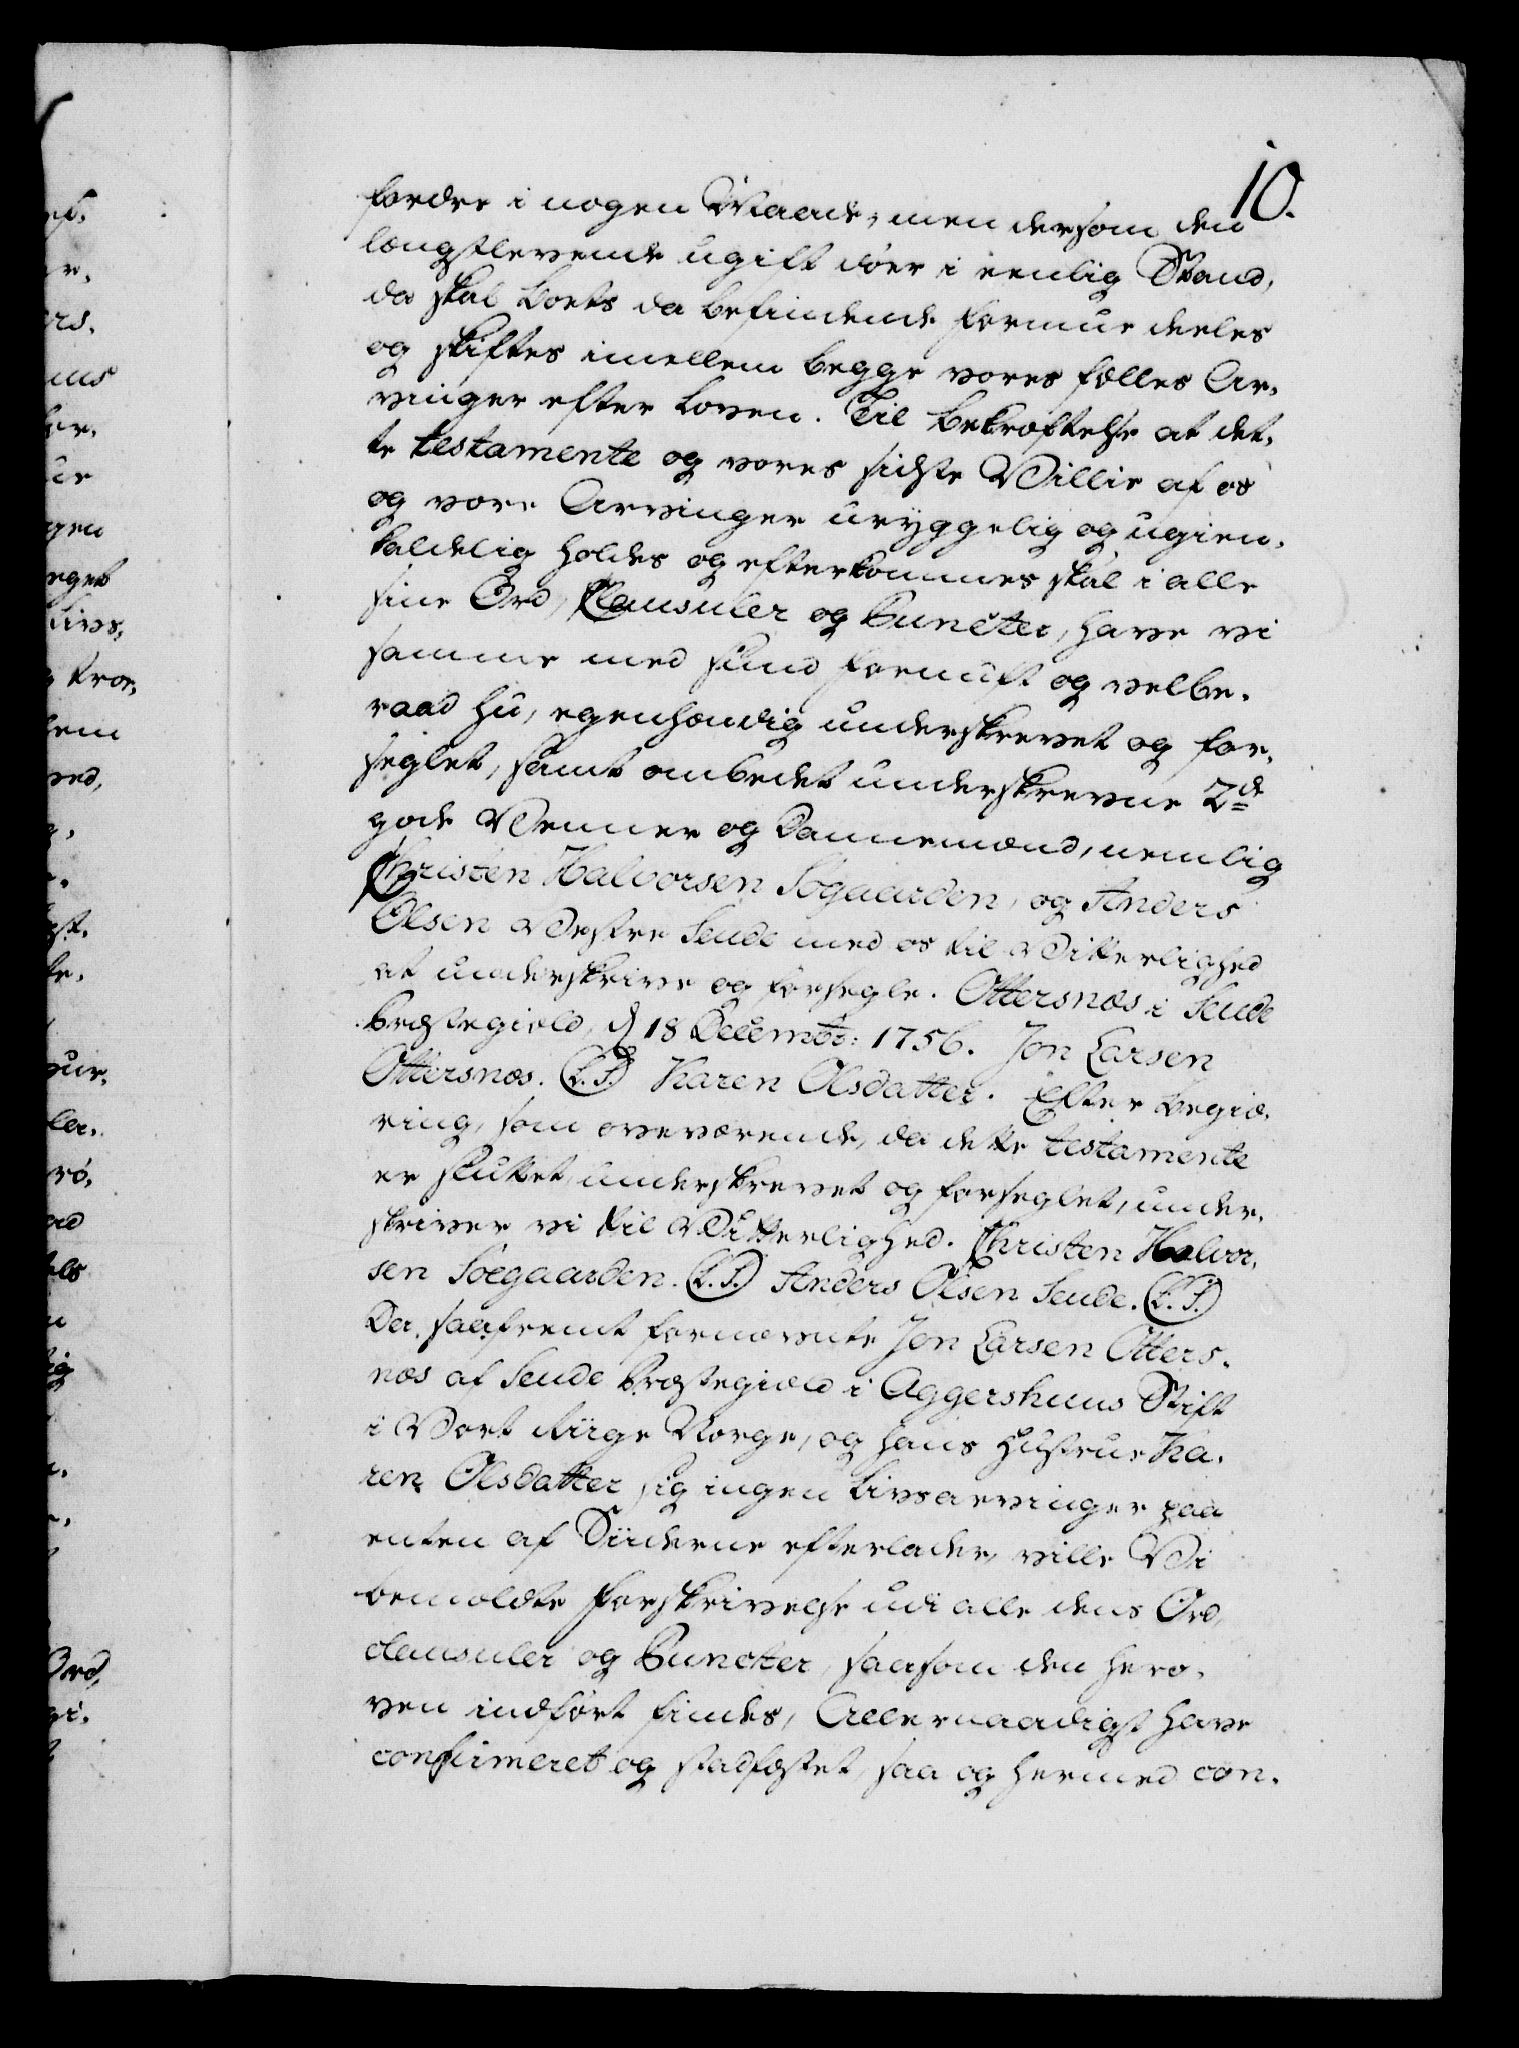 10.
fordre i nogen Maade, men dersom den
længstlevende ugift döer i eenlig Stand,
da skal boets da befindende formue deeles
og skiftes imellem begge vores fælles Ar-
vinger efter Loven. Til bekræftelse at det-
te testamente og vores sidste Villie af os
og vore Arvinger uryggelig og ugien-
kaldelig holdes og efterkommes skal i alle
sine Ord, Clausuler og Puncter, have vi
samme med sund fornuft og velbe-
raad hu, egenhændig underskrevet og for-
seglet, samt ombedet underskrevne 2de
gode Venner og Dannemænd, nemlig
Christen Halvorsen Sögaarden, og Anders
Olsen Vestre Seude med os til Vitterlighed
at underskrive og forsegle. Ottersnæs i Seude
Præstegield, d 18 Decembr: 1756. Jon Larsen
Ottersnæs. (L.S.) Karen Olsdatter. Efter begiæ-
ring, som overværende, da dette testamente
er sluttet, underskrevet og forseglet, under-
skriver vi til Vitterlighed. Christen Halvor-
sen Söegaarden. (L.S.) Anders Olsen Seude. (L.S.)
Da, saafremt fornævnte Jon Larsen Otters-
næs af Seude Præstegield i Aggershuus Stift
i Vort Riige Norge, og hans Hustrue Ka-
ren Olsdatter sig ingen Livsarvinger paa
enten af Siiderne efterlader, ville Vi
bemeldte Forskrivelse udi alle dens Ord,
clausuler og Puncter, saasom den hero-
ven indfört findes, Allernaadigst have
confirmeret og stadfæstet, saa og hermed con-